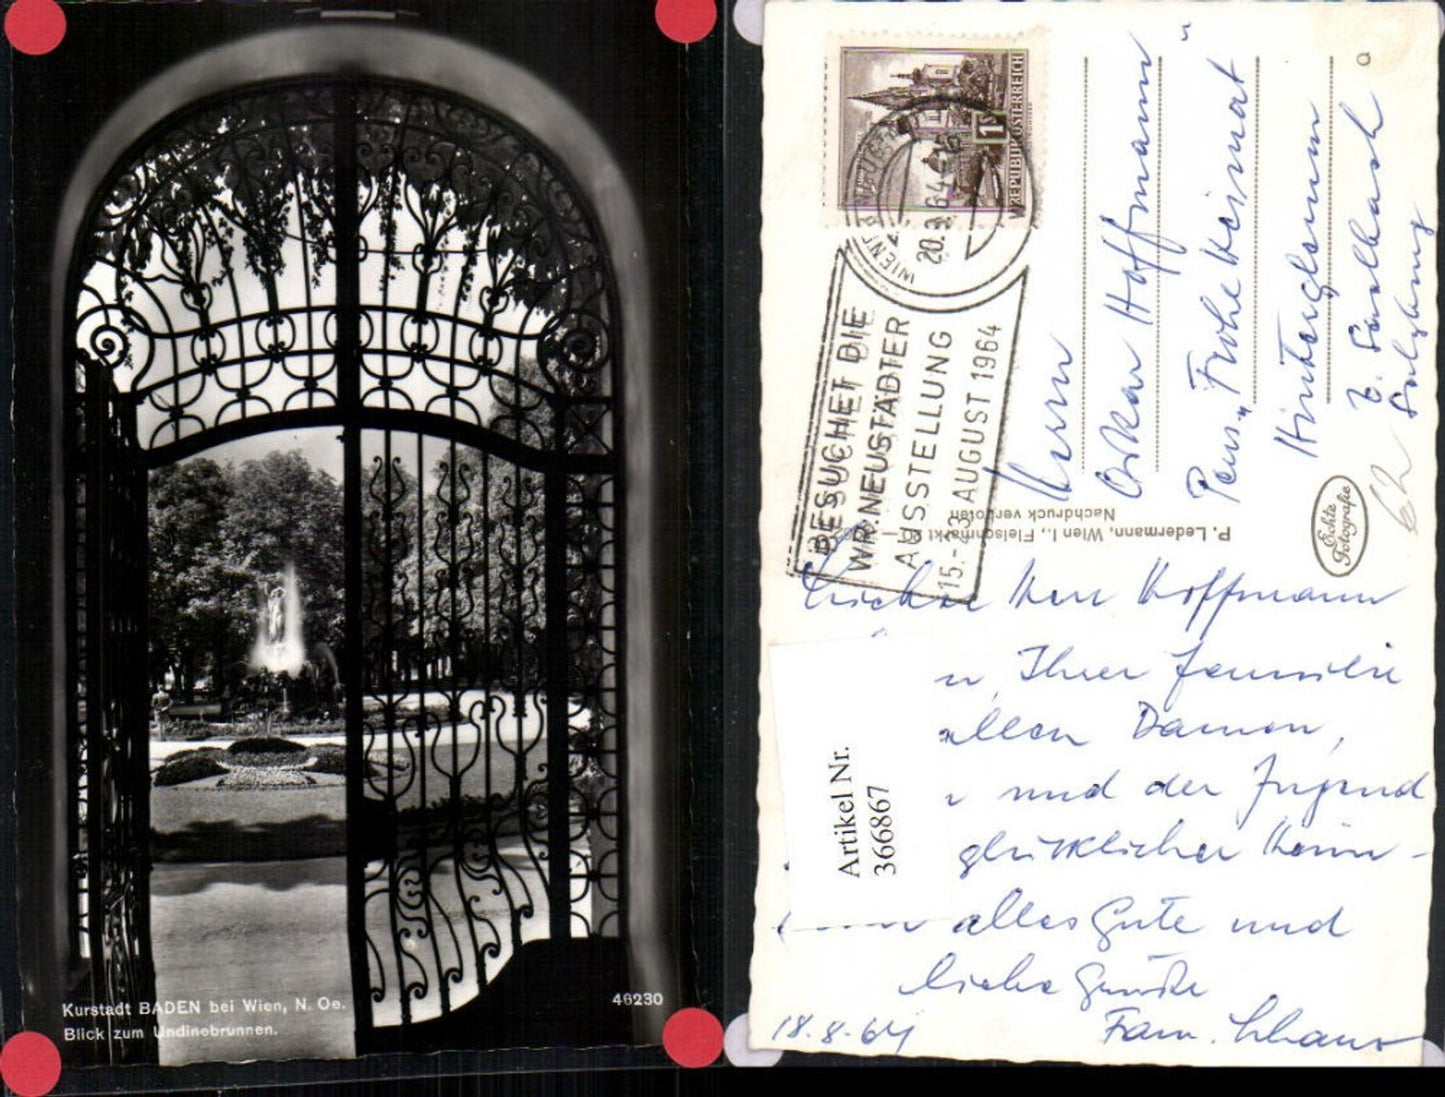 Kurstadt BADEN bei Wien, N. Oe.
Blick zum Undinebrunnen.
46230
REPUBLIK ÖSTERREICH
1S
WIENER NEUSTADT
BESUCHET DIE
WR. NEUSTÄDTER
AUSSTELLUNG
15.-23. AUGUST 1964
Herrn
Oskar Hoffmann
Pens. „Frohe Heimat"
Hinterglemm
b. Saalbach
Salzburg
P. Ledermann, Wien I., Fleischmarkt
Nachdruck verboten
Echte
Fotografie
Artikel Nr.
366867
Herr Hoffmann
Ihrer Familie
allen Damen,
und der Jugend
glücklicher Heim-
alles Gute und
liebe Grüße
18.8.64
Fam.